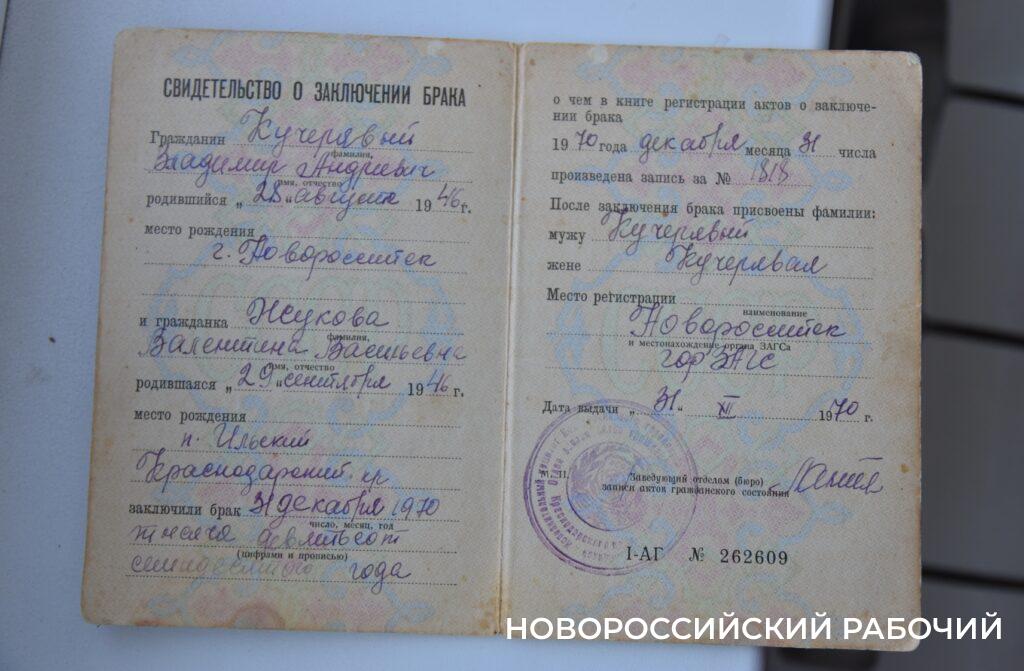 СВИДЕТЕЛЬСТВО О ЗАКЛЮЧЕНИИ БРАКА
Гражданин Кучерявый
фамилия,
Владимир Андриевич
имя, отчество
родившийся „ 28 “ августа 1946 г.
место рождения
г. Новороссийск
и гражданка Жукова
фамилия,
Валентина Васильевна
имя, отчество
родившаяся „ 29 “ сентября 1946 г.
место рождения
п. Ильский
Краснодарский кр
заключили брак 31 декабря 1970
число, месяц, год
тысяча девятьсот
(цифрами и прописью)
семидесятого года
о чем в книге регистрации актов о заключе-
нии брака
1970 года декабря месяца 31 числа
произведена запись за № 1818
После заключения брака присвоены фамилии:
мужу Кучерявый
жене Кучерявая
Место регистрации
наименование
Новороссийск
и местонахождение органа ЗАГСа
гор ЗАГС
Дата выдачи „ 31 “ XII 1970 г.
М. П.
Заведующий отделом (бюро)
записи актов гражданского состояния
I-АГ № 262609
НОВОРОССИЙСКИЙ РАБОЧИЙ